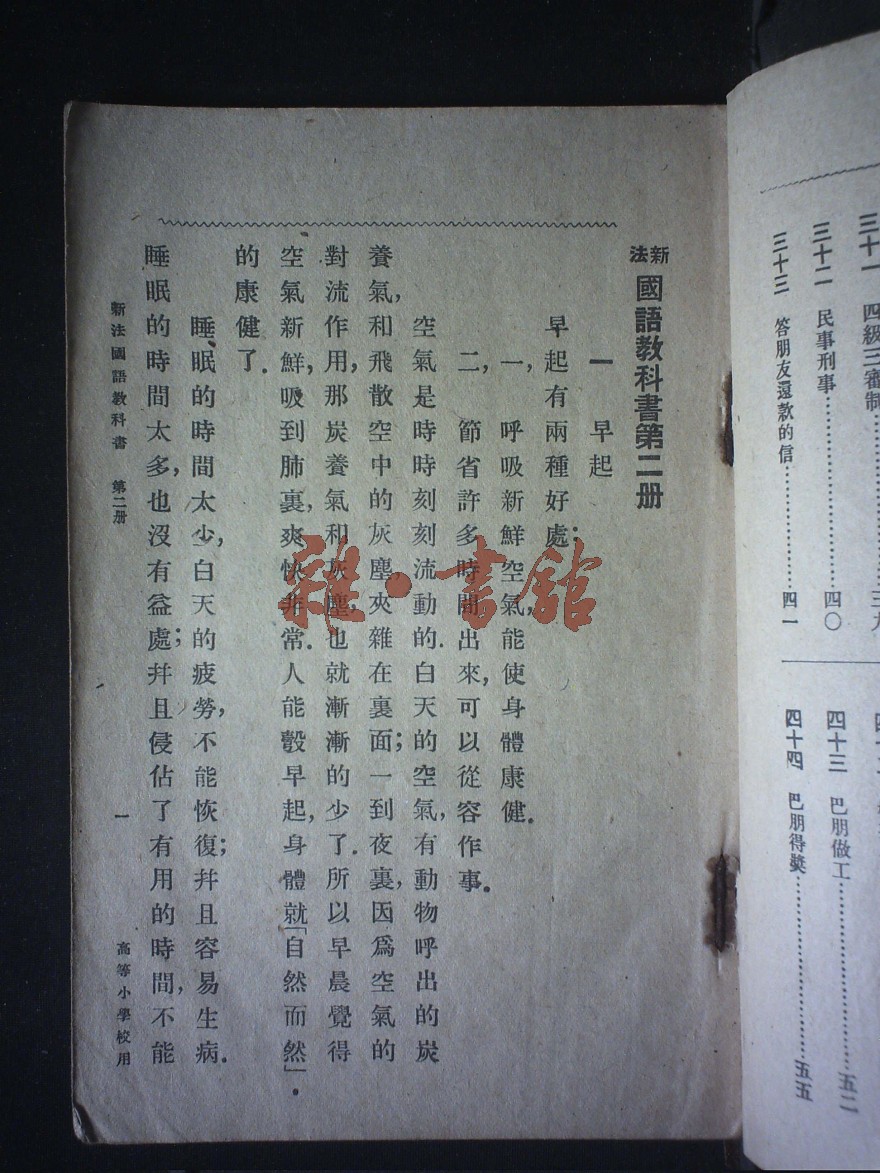 三十一 四級三審制……三九
三十二 民事刑事……四〇
三十三 答朋友還款的信……四一
四十三 巴朋做工……五二
四十四 巴朋得獎……五五
新法 國語教科書第二册
一 早起
早起有兩種好處；
一，呼吸新鮮空氣，能使身體康健．
二，節省許多時間出來，可以從容作事．
空氣是時時刻刻流動的．白天的空氣，有動物呼出的炭
養氣，和飛散空中的灰塵，夾雜在裏面；一到夜裏，因爲空氣的
對流作用，那炭養氣和灰塵，也就漸漸的少了．所以早晨覺得
空氣新鮮，吸到肺裏，爽快非常．人能彀早起，身體就「自然而然」．
的康健了．
睡眠的時間太少，白天的疲勞，不能恢復；幷且容易生病．
睡眠的時間太多，也沒有益處；幷且侵佔了有用的時間，不能
新法國語教科書 第二册 一 高等小學校用
雜·書館